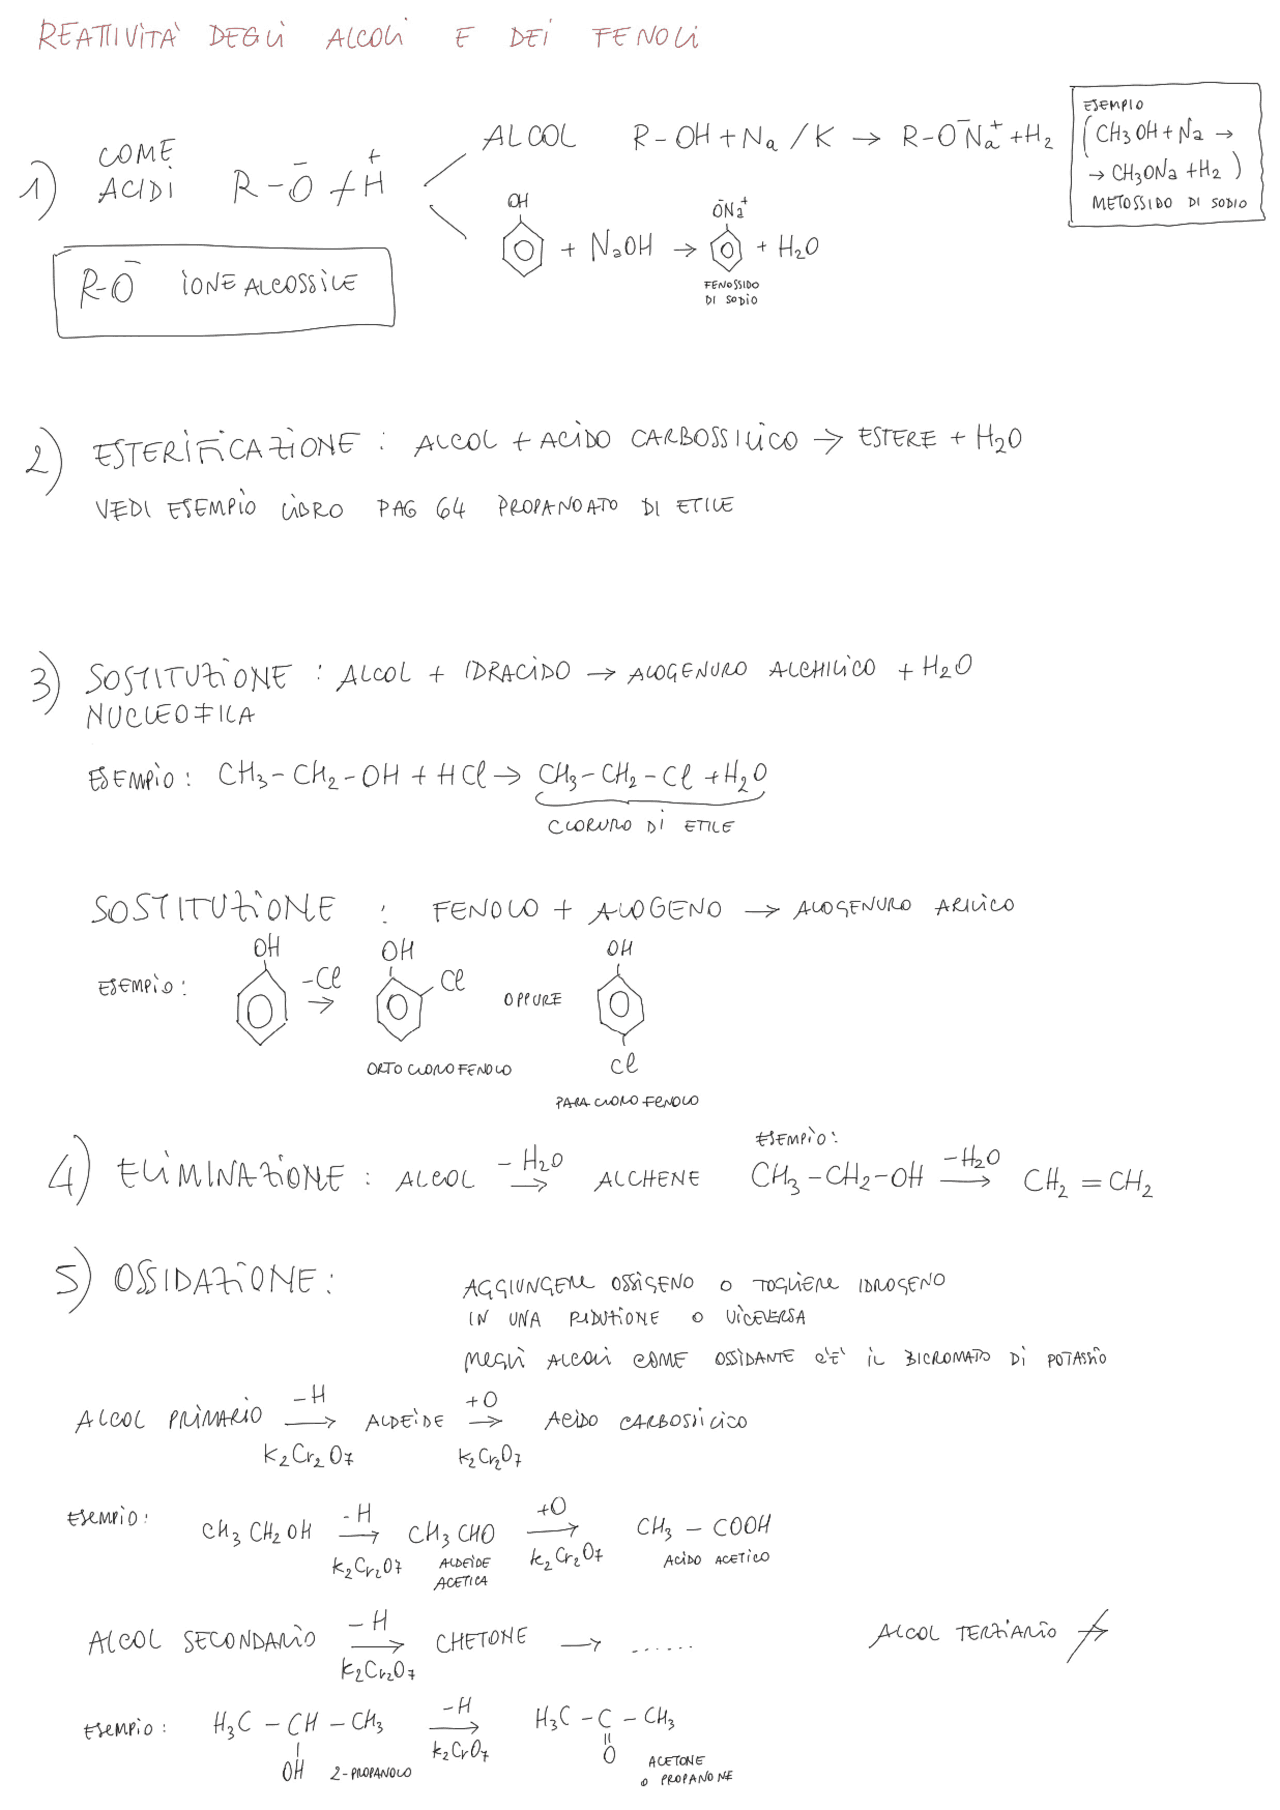 REATTIVITÀ DEGLI ALCOLI E DEI FENOLI
1) COME ACIDI R-O⁻ + H⁺
ALCOL R-OH + Na / K → R-O⁻Na⁺ + H2
ESEMPIO
(CH3OH + Na →
→ CH3ONa + H2)
METOSSIDO DI SODIO
OH O⁻Na⁺
+ NaOH → + H2O
FENOSSIDO
DI SODIO
R-O⁻ IONE ALCOSSILE
2) ESTERIFICAZIONE : ALCOL + ACIDO CARBOSSILICO → ESTERE + H2O
VEDI ESEMPIO LIBRO PAG 64 PROPANOATO DI ETILE
3) SOSTITUZIONE : ALCOL + IDRACIDO → ALOGENURO ALCHILICO + H2O
NUCLEOFILA
ESEMPIO: CH3-CH2-OH + HCl → CH3-CH2-Cl + H2O
CLORURO DI ETILE
SOSTITUZIONE : FENOLO + ALOGENO → ALOGENURO ARILICO
OH OH OH
ESEMPIO: -Cl → Cl OPPURE
Cl
ORTO CLORO FENOLO
PARA CLORO FENOLO
ESEMPIO:
4) ELIMINAZIONE : ALCOL -H2O → ALCHENE CH3-CH2-OH -H2O → CH2=CH2
5) OSSIDAZIONE : AGGIUNGERE OSSIGENO O TOGLIERE IDROGENO
IN UNA RIDUZIONE O VICEVERSA
NEGLI ALCOLI COME OSSIDANTE C'È IL BICROMATO DI POTASSIO
ALCOL PRIMARIO -H → ALDEIDE +O → ACIDO CARBOSSILICO
K2Cr2O7 K2Cr2O7
ESEMPIO: CH3CH2OH -H → CH3CHO +O → CH3-COOH
K2Cr2O7 ALDEIDE ACETICA K2Cr2O7 ACIDO ACETICO
ALCOL SECONDARIO -H → CHETONE → ...... ALCOL TERZIARIO ↛
K2Cr2O7
ESEMPIO: H3C-CH-CH3 -H → H3C-C-CH3
K2CrO7
OH 2-PROPANOLO O ACETONE
O PROPANONE